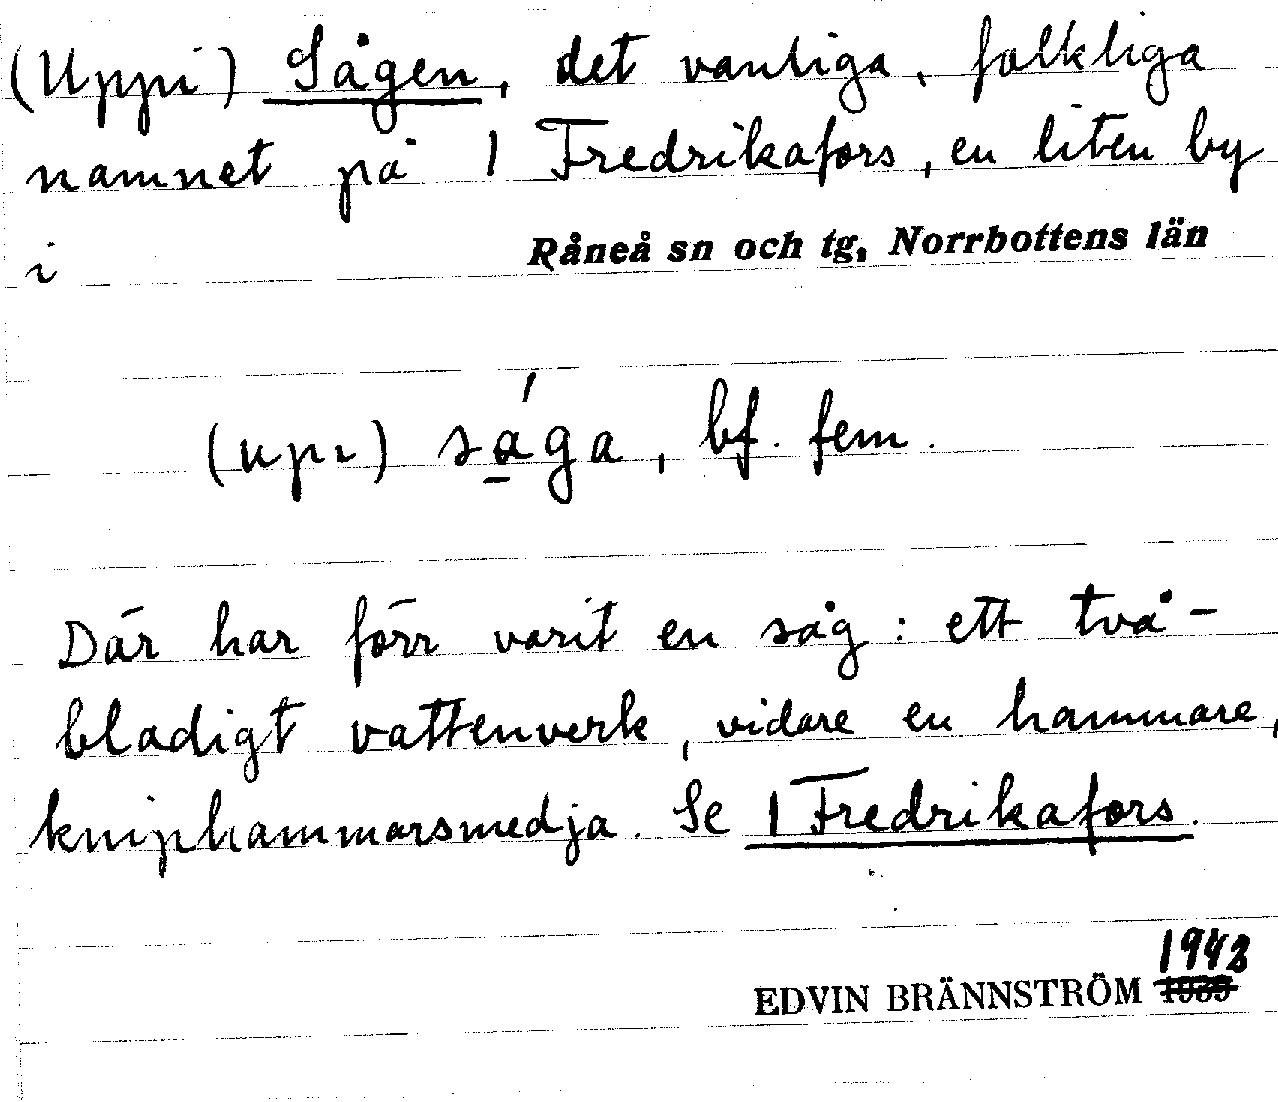 (Uppi) Sågen, det vanliga, folkliga
namnet på 1 Fredrikafors, en liten by
i Råneå sn och tg, Norrbottens län
(upi) sá̱ga, bf. fem.
Där har förr varit en såg: ett två-
bladigt vattenverk, vidare en hammare,
kniphammarsmedja. Se 1 Fredrikafors.
1943
EDVIN BRÄNNSTRÖM